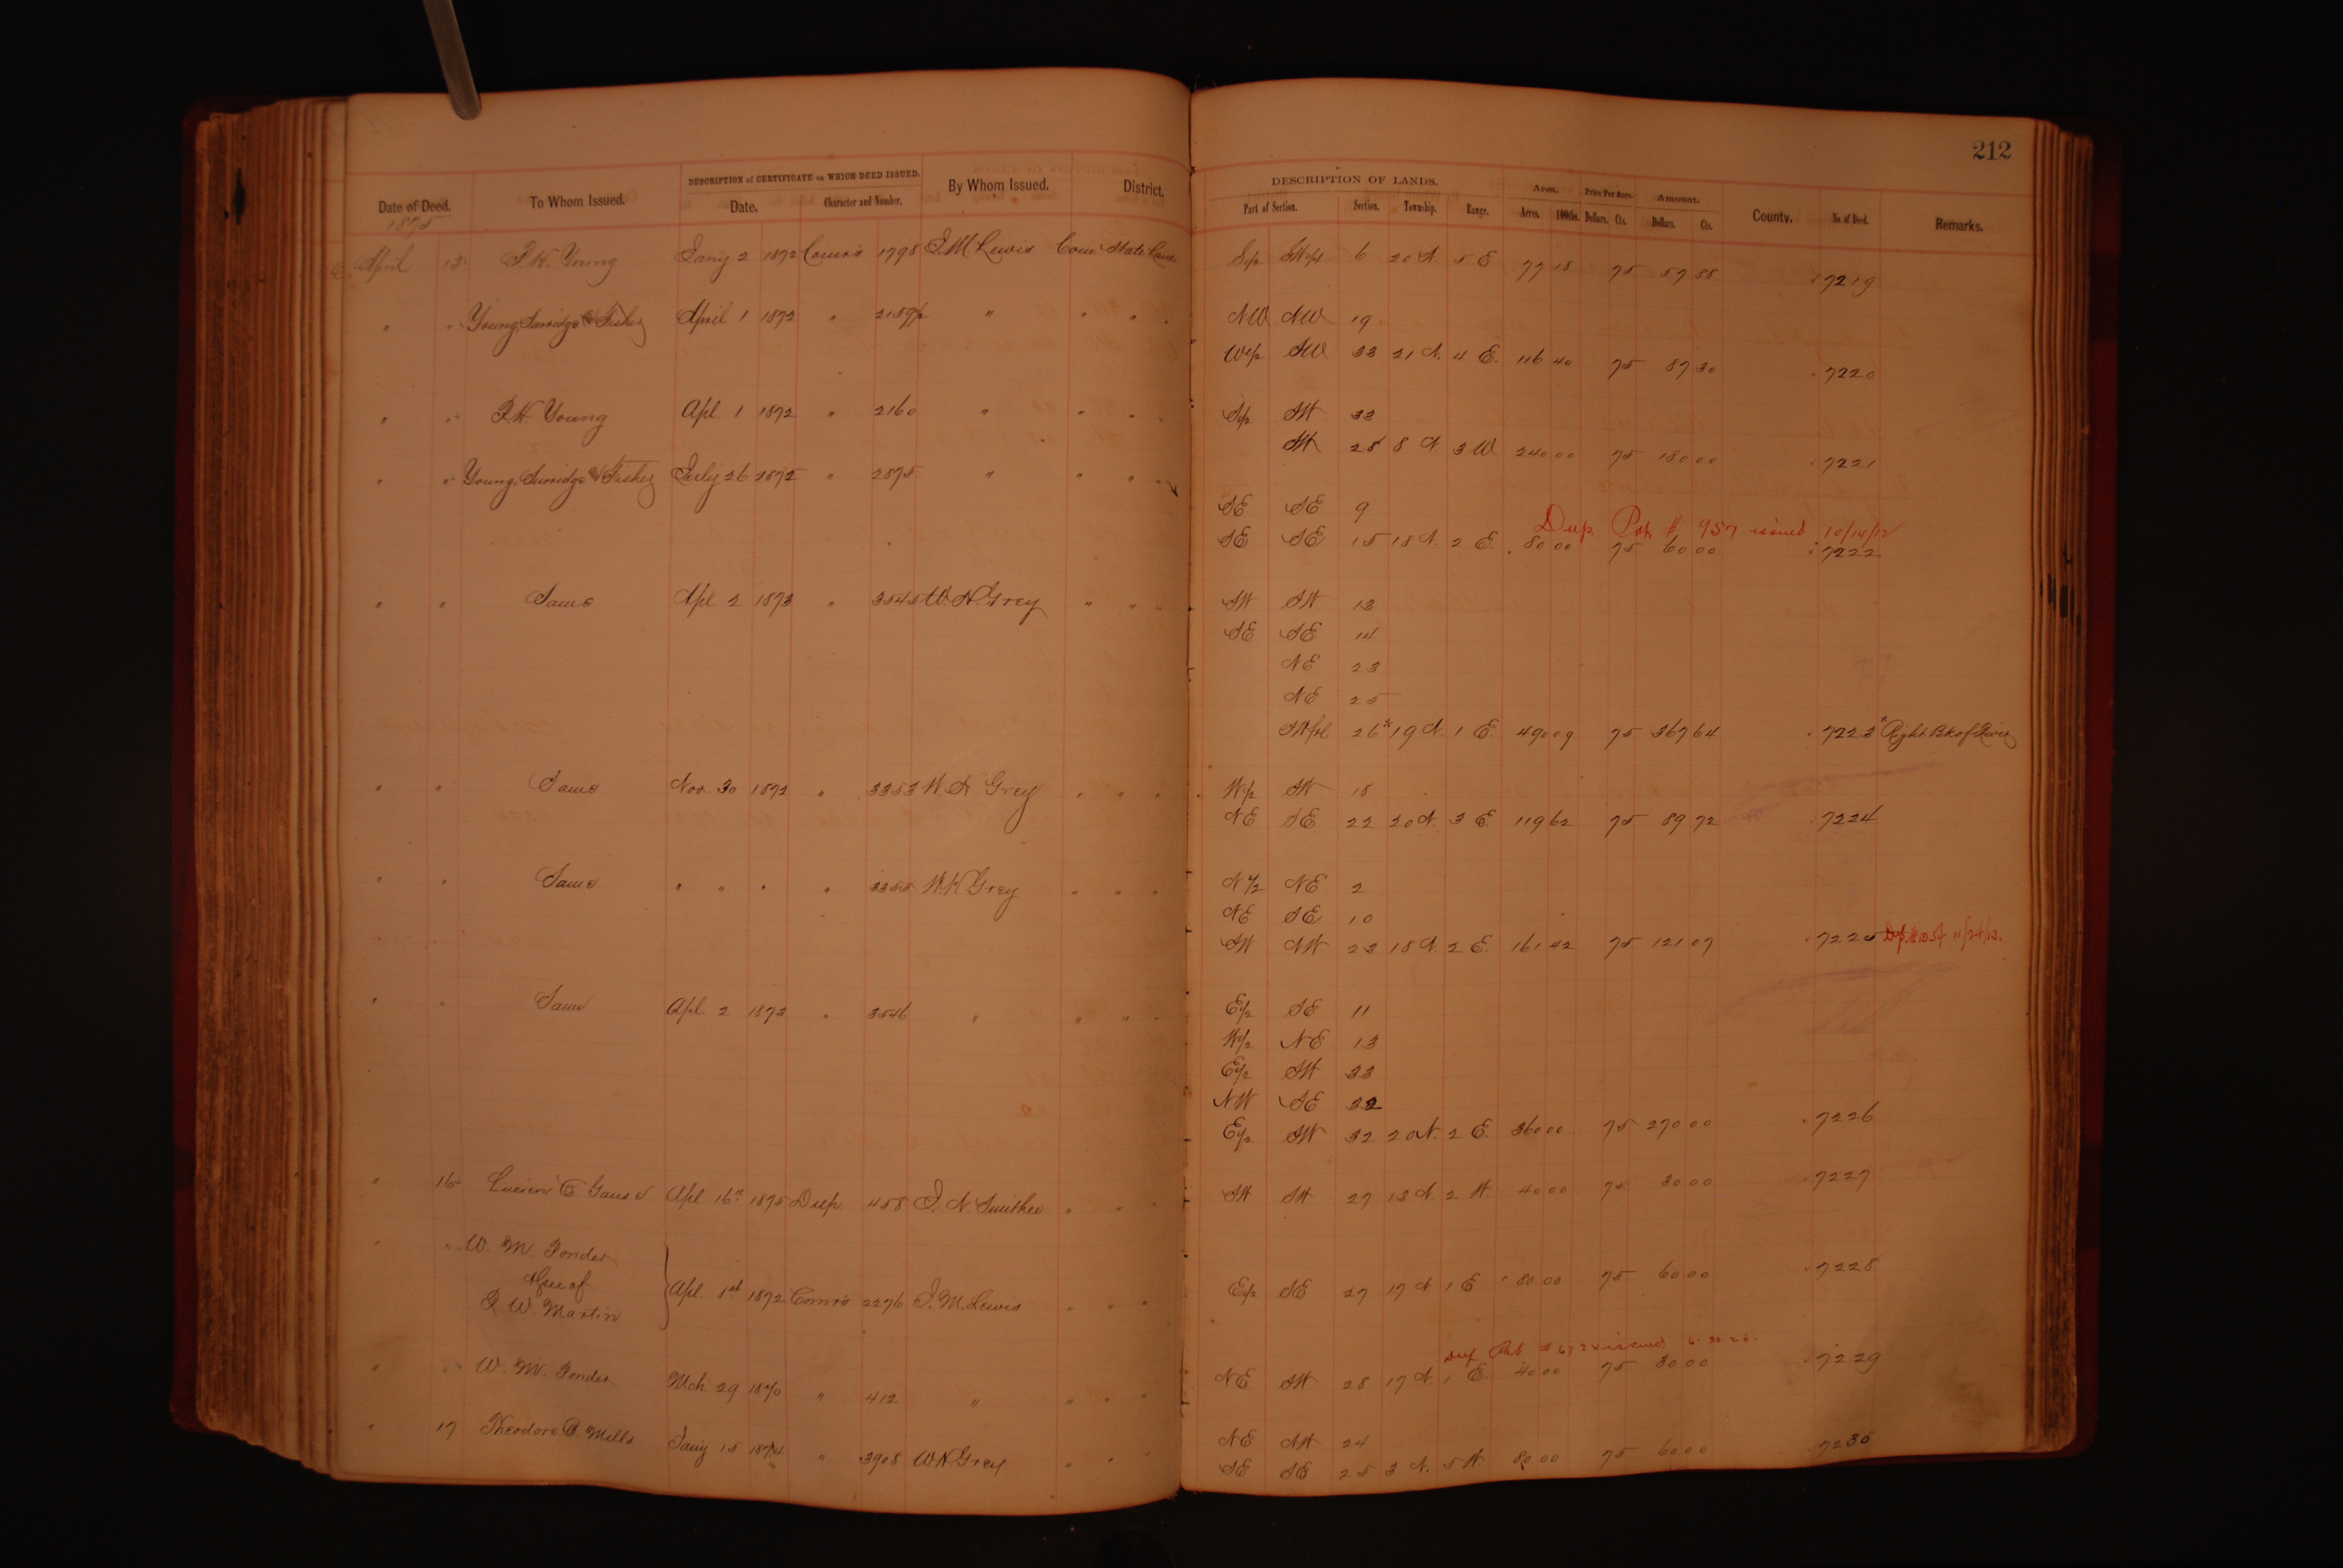 212
DESCRIPTION of CERTIFICATE on WHICH DEED ISSUED. DESCRIPTION OF LANDS. Area. Price Per Acre. Amount.
Date of Deed. To Whom Issued. Date. Character and Number. By Whom Issued. District. Part of Section. Section. Township. Range. Acres. 100ths. Dollars. Cts. Dollars. Cts. County. No. of Deed. Remarks.
1875
April 13 P.H. Young Jany 2 1872 Comr's 1798 J.M. Lewis Com State Land S½ 6 20 N. 5 E 77 18 75 57 88 7219
" " Young, Surridge & Fisher April 1 1872 " 2159½ " " " " NW NW 19
W½ SW 33 21 N. 4 E. 116 40 75 87 30 7220
" " P.H. Young Apl 1 1872 " 2160 " " " " S½ SW 33
SW 28 8 N. 3 W 240 00 75 180 00 7221
" " Young, Surridge & Fisher July 26 1872 " 2875 " " " " SE SE 9
Dup. Pat # 957 issued 10/14/12
SE SE 15 18 N. 2 E. 80 00 75 60 00 7222
" " Same Apl. 2 1873 " 3545 W.H. Grey " " " SW SW 13
SE SE 14
NE 23
NE 25
SW frl 26* 19 N. 1 E. 490 09 75 367 64 7223 *Right Bk of River
" " Same Nov. 30 1872 " 3353 W.H Grey " " " W½ SW 18
NE SE 22 20 N. 3 E. 119 62 75 89 72 7224
" " Same " " " " 3355 W.H Grey " " " N½ NE 2
NE SE 10
SW NW 23 18 N. 2 E. 161 42 75 121 07 7225 11/24/13.
" " Same Apl. 2 1873 " 3546 " " " " E½ SE 11
W½ NE 13
E½ SW 33
NW SE 32
E½ SW 32 20 N. 2 E. 360 00 75 270 00 7226
" 16 Lucien C. Gause Apl 16" 1875 Dup. 458 J. N. Smithee " " " SW SW 27 13 N. 2 W. 40 00 75 30 00 7227
" " W. M. Ponder
Asee of
P. W. Martin } Apl. 1st 1872 Comr's 2276 J. M. Lewis " " " E½ SE 27 17 N. 1 E 80 00 75 60 00 7228
Dup Pat # issued 6-30-25-
" " W. M. Ponder Mch. 29 1870 " 412 " " " " NE SW 28 17 N. 1 E. 40 00 75 30 00 7229
" 17 Theodore D. Mills Jany 15 1874 " 3908 W H Grey " " " NE NW 24
SE SE 25 3 N. 5 W 80 00 75 60 00 7230